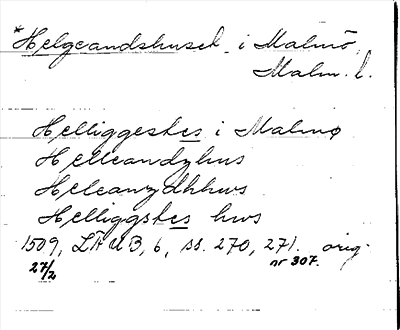 *Helgeandshuset i Malmö,
Malm. l.
Helliggestes i Malmø
Helleandzhus
Heleanzdhhws
Helliggstes hws
1509, LÅUB, 6, ss. 270, 271. orig.
27/2 nr 307.